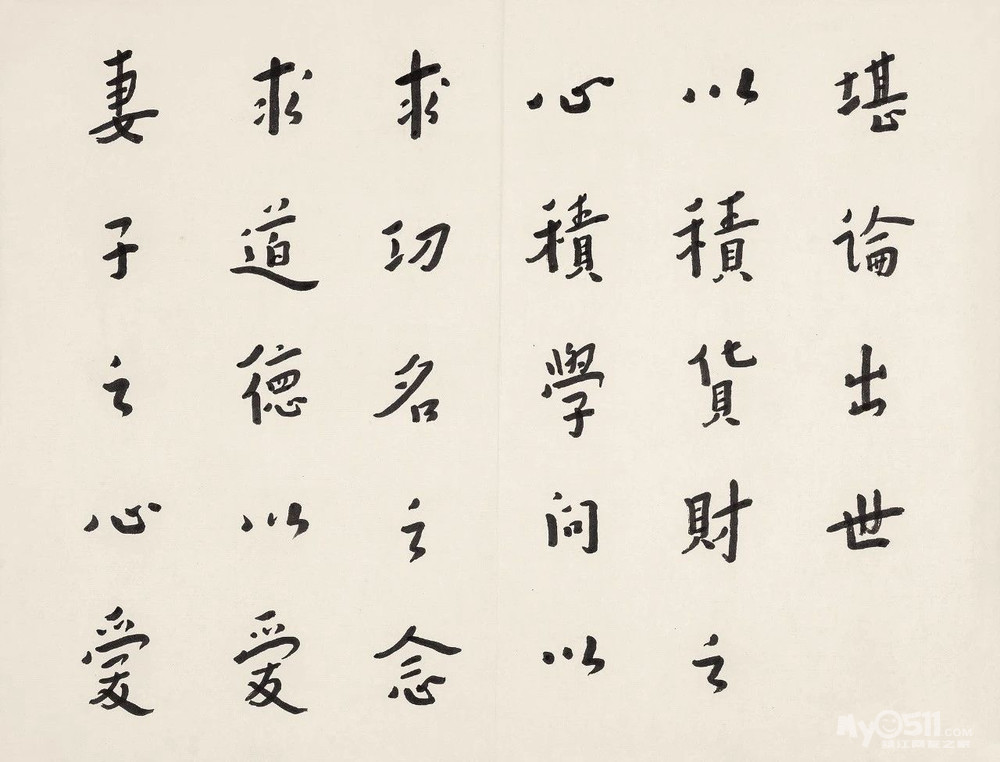 堪論出世
以積貨財之
心積學問以
求功名之念
求道德以愛
妻子之心愛
My0511.COM